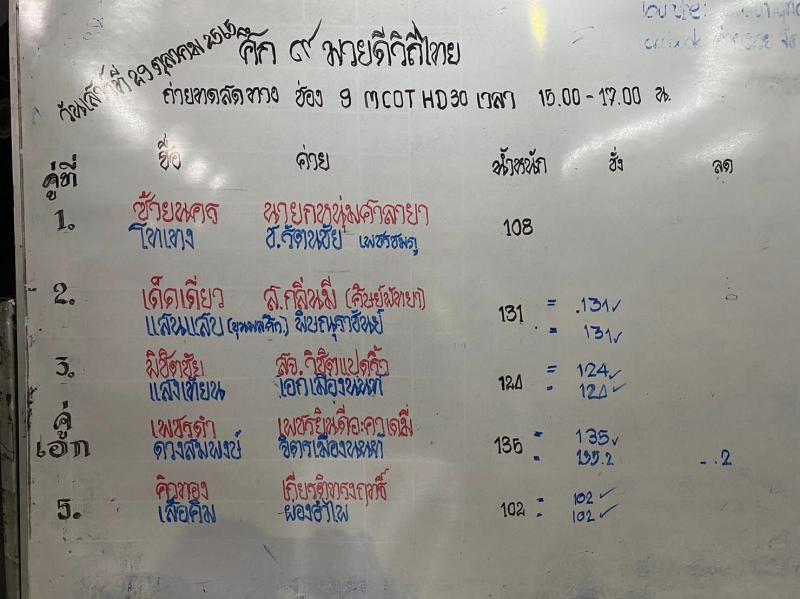 วันเสาร์ที่ 29 ตุลาคม 2565
ศึก ๙ พายดีวิถีไทย
ถ่ายทดสดทาง ช่อง 9 MCOT HD30 เวลา 15.00-17.00 น.
คู่ที่ ชื่อ ค่าย น้ำหนัก ชั่ง ลด
1. ซ้ายนคร นายกหนุ่มศาลายา 108
โทเทง ช.รัตนชัย เพชรชมภู
2. เด็ดเดี่ยว ส.กลิ่นมี (ศิษย์พัทยา) 131 = .131✓
แสนแสบ พิษณุราชันย์ = 131✓
3. พิชิตชัย สจ.วิชิตแปดริ้ว 124 = 124✓
แสงเทียน เอกเมืองนนท์ - 124✓
คู่เอก เพชรดำ เพชรยินดีอะคาเดมี่ 135 = 135✓
ดวงสมพงษ์ จิตรเมืองนนท์ = 135.2 - .2
5. คิวทอง เกียรติทรงฤทธิ์ 102 = 102✓
เสือคิม ผองอำไพ = 102✓